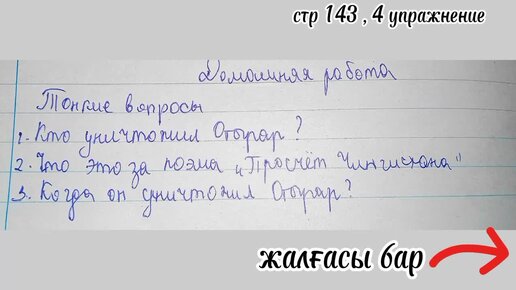 стр 143 , 4 упражнение
Домашняя работа
Тонкие вопросы
1. Кто уничтожил Отырар ?
2. Что это за поэма „Просчёт Чингисхана"
3. Когда он уничтожил Отырар?
жалғасы бар